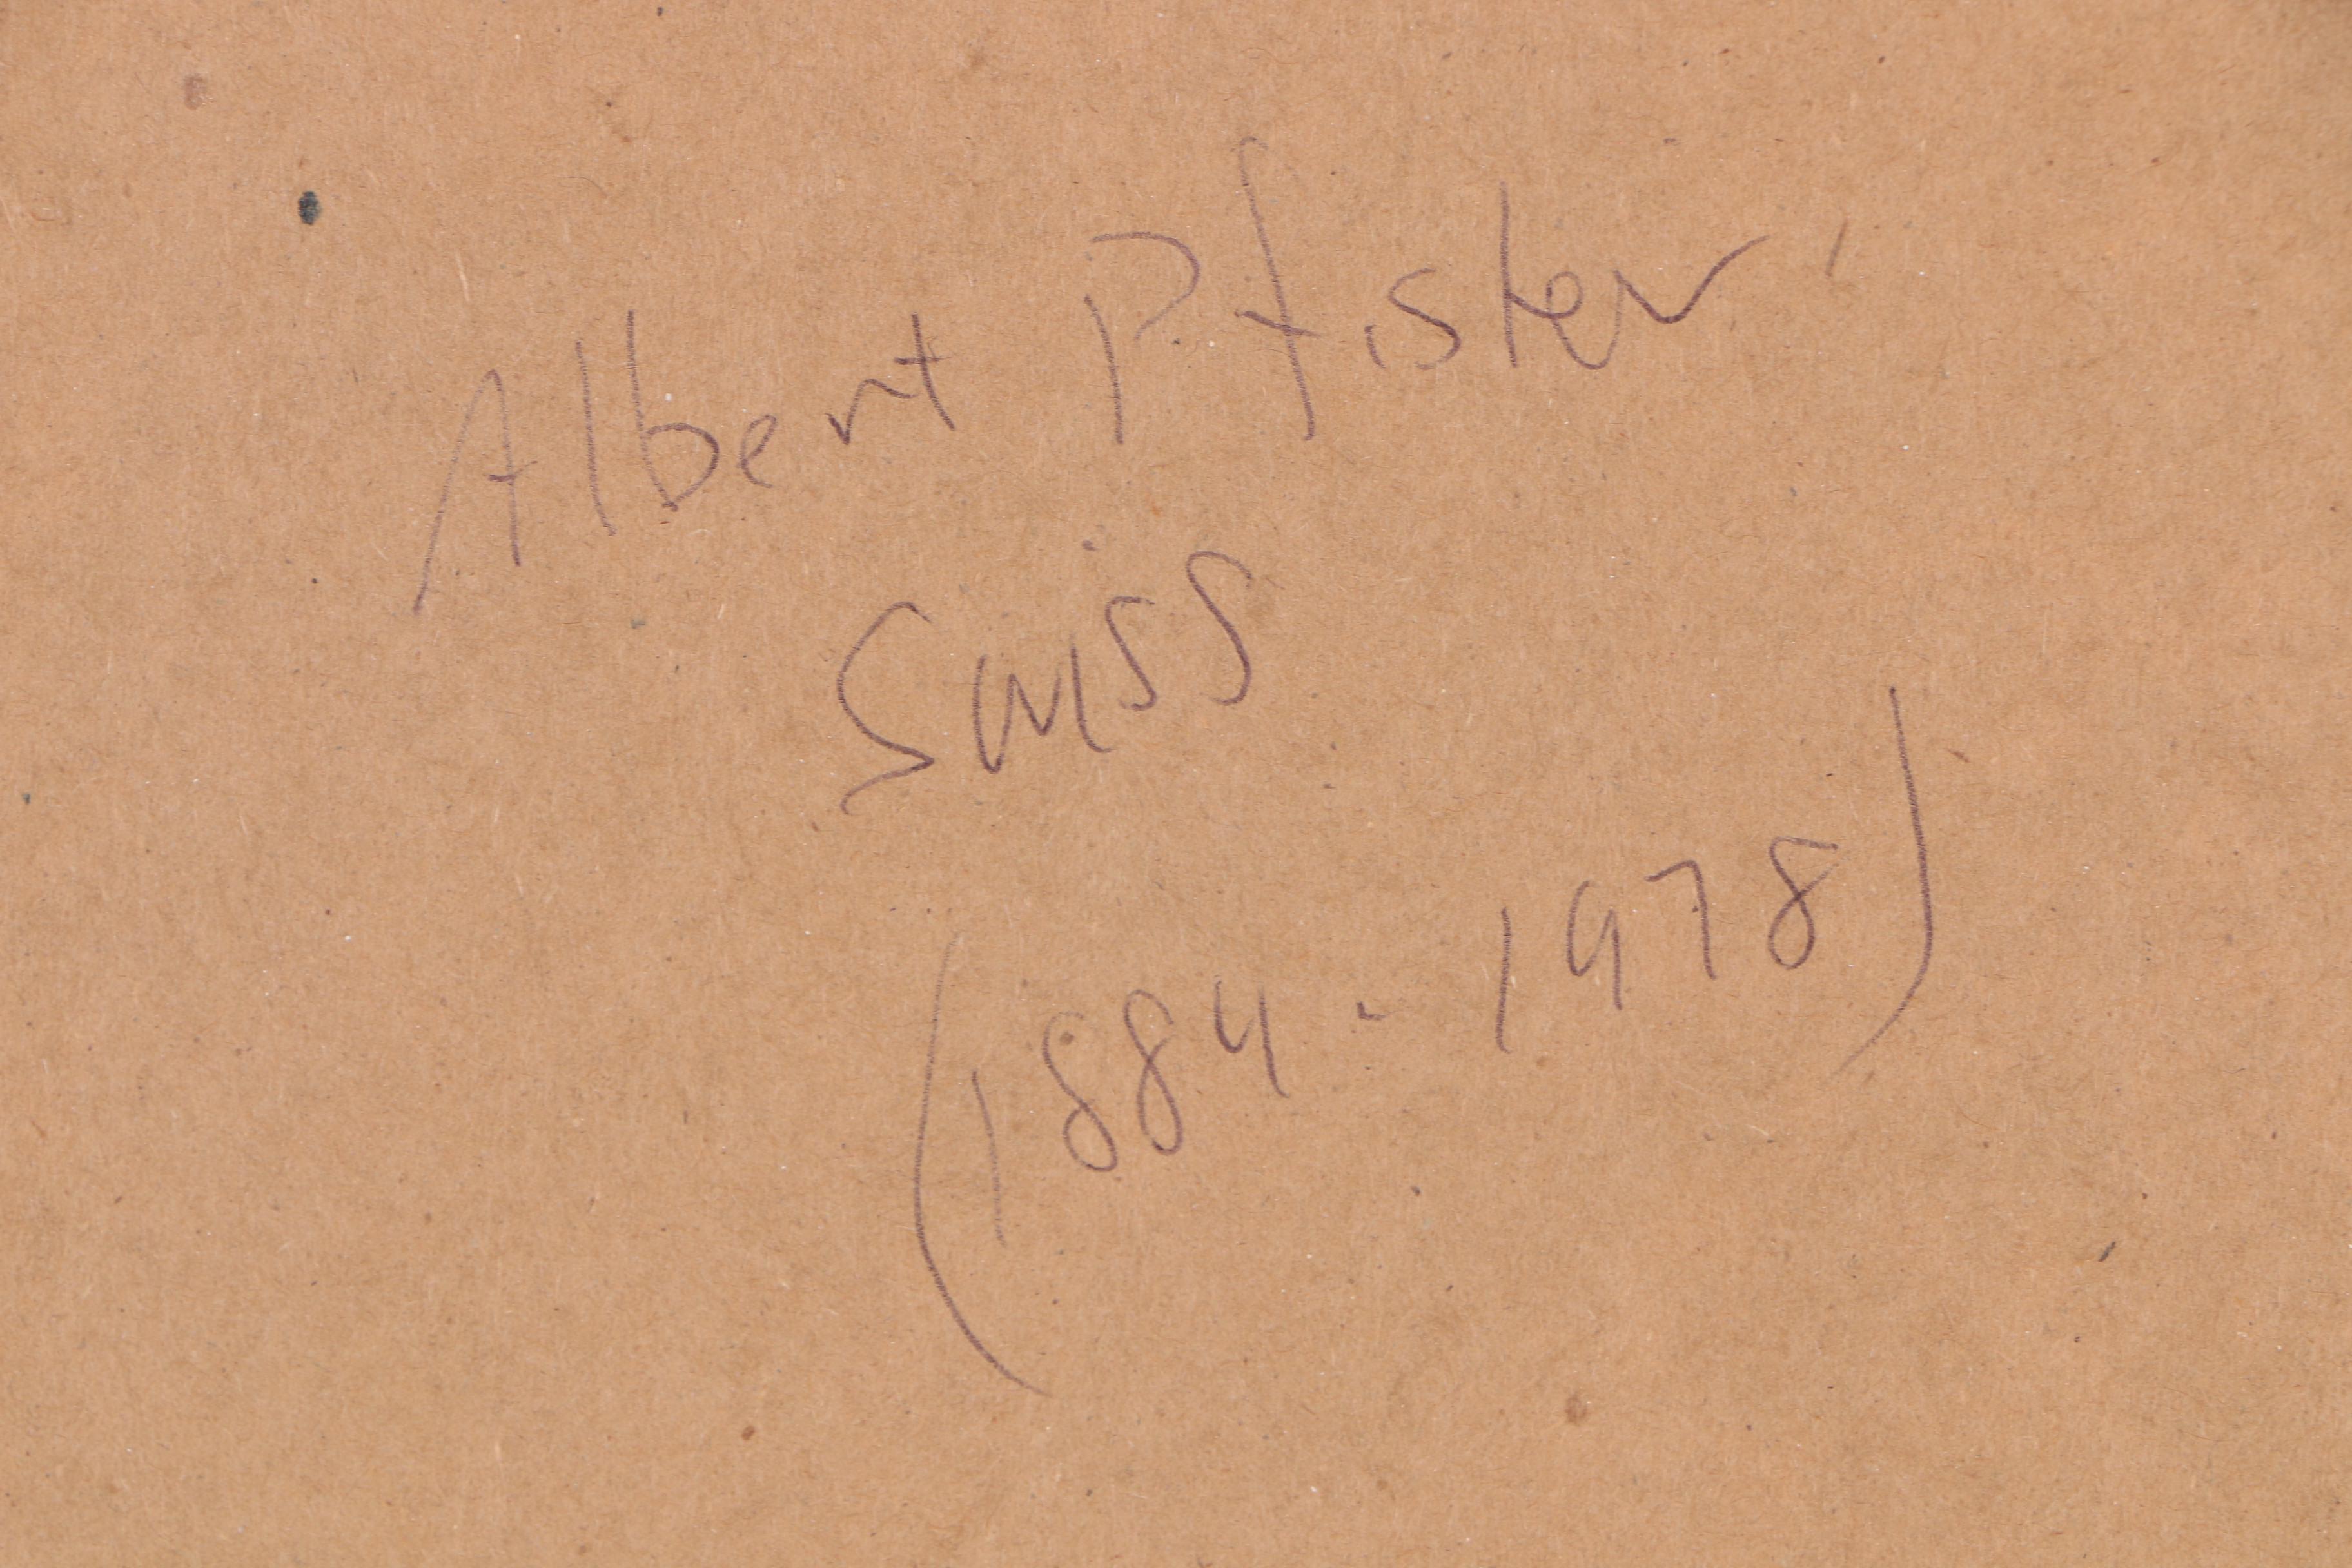 Albert Pfister
Swiss
(1884 - 1978)